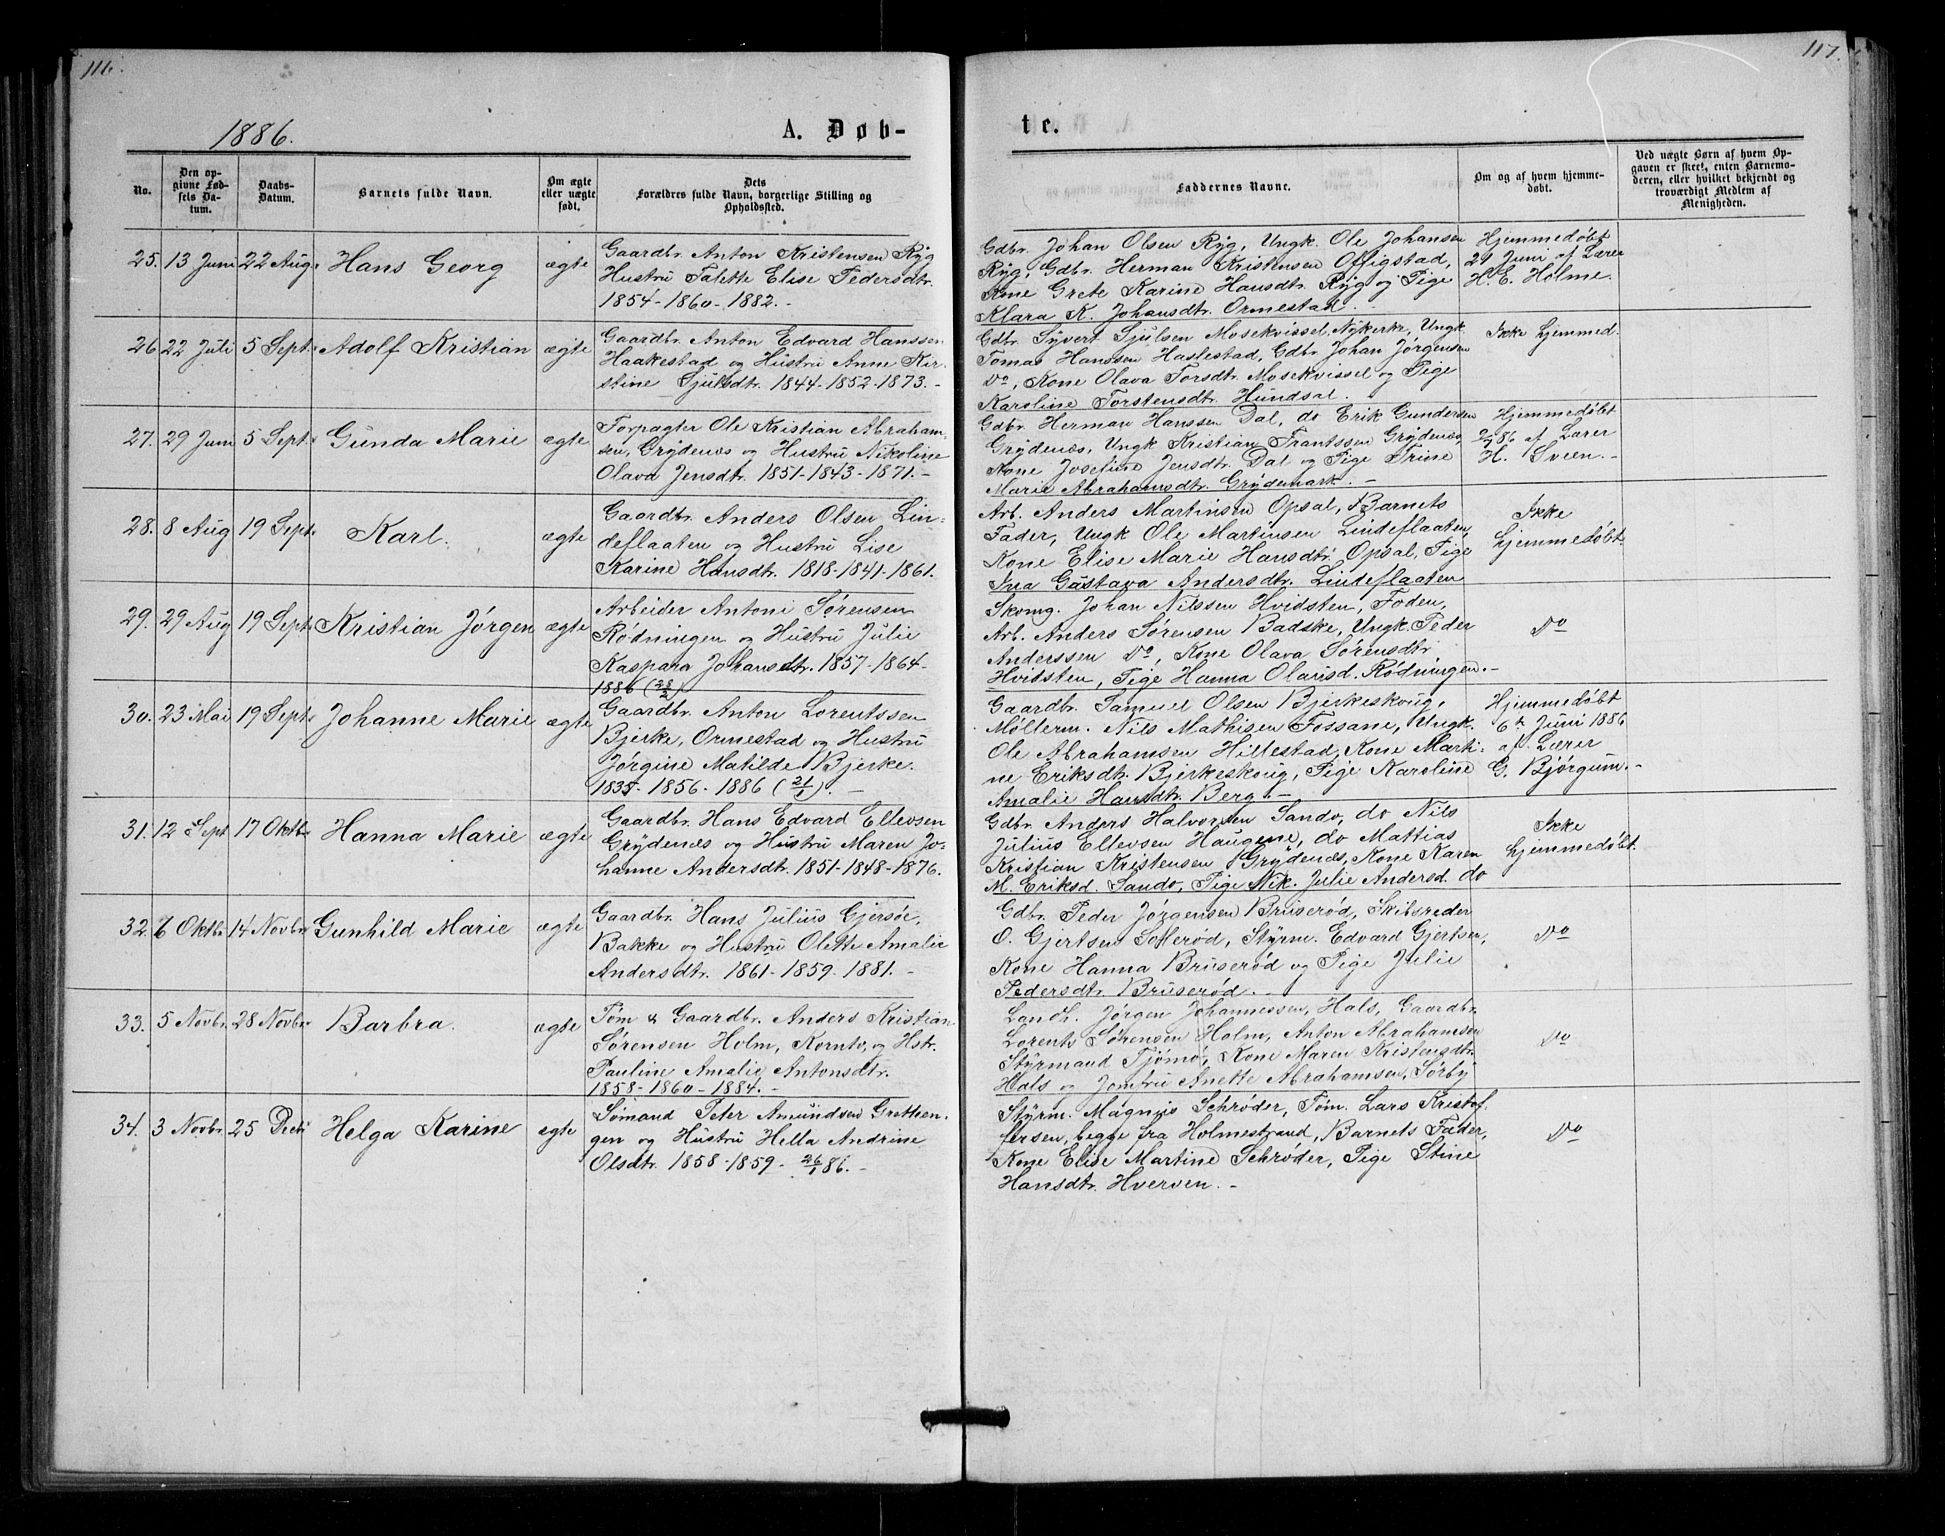 116.
117.
1886.
A. Døb-
te.
No.
Den op-
givne Fød-
sels Da-
tum.
Daabs-
Datum.
Barnets fulde Navn.
Om ægte
eller uægte
født.
Dets
Forældres fulde Navn, borgerlige Stilling og
Opholdssted.
Faddernes Navne.
Om og af hvem hjemme-
døbt.
Ved uægte Børn af hvem Op-
gaven er skeet, enten Barnemo-
deren, eller hvilket bekjendt og
troværdigt Medlem af
Menigheden.
25. 13 Juni 22 Aug. Hans Georg ægte
Gaardbr. Anton Kristensen Ryg
Hustru Talette Elise Pedersdtr.
1854-1860-1882.-
Gdbr. Johan Olsen Ryg, Ungk. Ole Johansen
Ryg, Gdbr. Herman Kristensen Offigstad,
Kone Grete Karine Hansdtr. Ryg og Pige
Klara K. Johansdtr. Ormestad.
Hjemmedøbt
21 Juni af Lærer
H. E. Holme.
26 22 Juli 5 Sept. Adolf Kristian ægte
Gaardbr. Anton Edvard Hanssen
Haakestad og Hustru Anne Kir-
stine Sjulsdtr. 1844-1852-1873.-
Gdbr. Syvert Sjulsen Mosekvissel, Nykerke, Ungk.
Tomas Hanssen Haslestad, Gdbr. Johan Jørgensen
Do, Kone Olava Torsdtr. Mosekvissel og Pige
Karoline Torstensdtr. Hundsal.
Ikke hjemmed.
27. 29 Juni 5 Sept. Gunda Marie ægte
Forpagter Ole Kristian Abraham-
sen, Grydenæs og Hustru Nikoline
Olava Jensdtr. 1851-1843-1871.-
Gdbr. Herman Hanssen Dal, do Erik Gundersen
Grydenæs, Ungk Kristian Frantssen Grydenæs
Kone Josefine Jensdtr. Dal og Pige Trine
Marie Abrahamsdtr. Grydemark.-
Hjemmedøbt
86 af Lærer
H. Sveen.-
28. 8 Aug 19 Sept. Karl. ægte
Gaardbr. Anders Olsen Lin-
deflaaten og Hustru Lise
Karine Hansdtr. 1818-1841-1861.
Arb. Anders Martinsen Opsal, Barnets
Fader, Ungk Ole Martinsen Lindeflaaten,
Kone Elise Marie Hansdtr. Opsal, Pige
Ina Gustava Andersdtr. Lindeflaaten
Ikke
hjemmedøbt.
29. 29 Aug 19 Sept. Kristian Jørgen ægte
Arbeider Antoni Sørensen
Rødningen og Hustru Julie
Kaspara Johansdtr. 1857-1864-
1886 (28/2)
Skomg. Johan Nilssen Hvidsten, Foden,
Arb. Anders Sørensen Badske, Ungk. Peder
Anderssen Do, Kone Olava Sørensdtr
Hvidsten, Pige Hanna Olausd. Rødningen.-
Do
30. 23 Mai 19 Sept. Johanne Marie ægte
Gaardbr. Anton Lorentssen
Bjerke, Ormestad og Hustru
Jørgine Matilde Bjerke.
1835-1856-1886 (21/1).-
Gaardbr. Samuel Olsen Bjerkeskoug,
Møllerm. Nils Mathisen Fossane, Ungk.
Ole Abrahamsen Hillestad, Kone Marti-
ne Eriksdtr. Bjerkeskoug, Pige Karoline
Amalie Hansdtr. Berg.-
Hjemmedøbt
6te Juni 1886
af Lærer
G. Bjørgum.-
31. 12 Sept 17 Oktbr Hanna Marie ægte
Gaardbr. Hans Edvard Ellevsen
Grydenæs og Hustru Maren Jo-
hanne Andersdtr. 1851-1848-1876.
Gdbr. Anders Halvorsen Sando, do Nils
Julius Ellevsen Haugene, do Mattias
Kristian Kristensen Grydenæs, Kone Karen
M. Eriksd. Sando, Pige Nik. Julie Andersd. do
Ikke
hjemmedøbt.
32. 6 Oktbr 14 Novbr Gunhild Marie ægte
Gaardbr. Hans Julius Gjersøe,
Bakke og Hustru Olette Amalie
Andersdtr. 1861-1859-1881.-
Gdbr. Peder Jørgensen Bruserød, Skibsreder
O. Gjertsen Sollerød, Styrm. Edvard Gjertsen,
Kone Hanna Bruserød og Pige Julie
Pedersdtr. Bruserød.-
Do
33. 5 Novbr. 28 Novbr. Barbra. ægte
Tøm & Gaardbr. Anders Kristian
Sørensen Holm, Kornto, og Hstr.
Pauline Amalie Antonsdtr.
1858-1860-1884.-
Landh. Jørgen Johannessen, Hals, Gaardbr.
Lorents Sørensen Holm, Anton Abrahamsen
Styrmand Tjømø, Kone Maren Kristensdtr.
Hals og Jomfru Anette Abrahamsen, Sørby
Do
34. 3 Novbr. 25 Decbr Helga Karine ægte
Sømand Peter Amundsen Gretteen-
gen og Hustru Hella Andrine
Olsdtr. 1858-1859-26/1 86.-
Styrm. Magnus Schrøder, Tøm. Lars Kristof-
fersen, begge fra Holmestrand, Barnets Fader,
Kone Elise Martine Schrøder, Pige Stine
Hansdtr. Hverven.-
Do